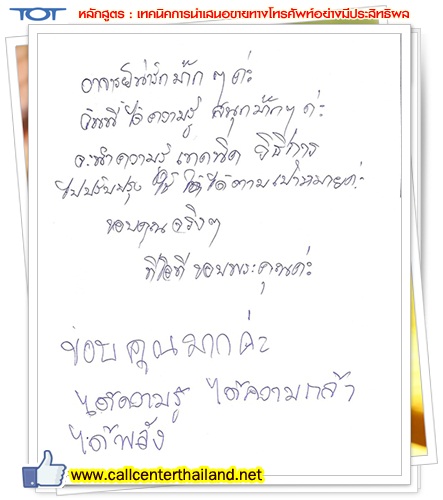 TOT หลักสูตร : เทคนิคการนำเสนอขายทางโทรศัพท์อย่างมีประสิทธิผล
อาจารย์น่ารักม๊ากๆค่ะ
วันนี้ได้ความรู้ สนุกม๊ากๆ ค่ะ
จะนำความรู้ เทคนิค วิธีการ
ไปปรับปรุง ให้ ได้ตามเป้าหมายค่ะ
ขอบคุณจริงๆ
ทีโอที ขอบพระคุณค่ะ
ขอบคุณมากค่ะ
ได้ความรู้ ได้ความกล้า
ได้พลัง
www.callcenterthailand.net